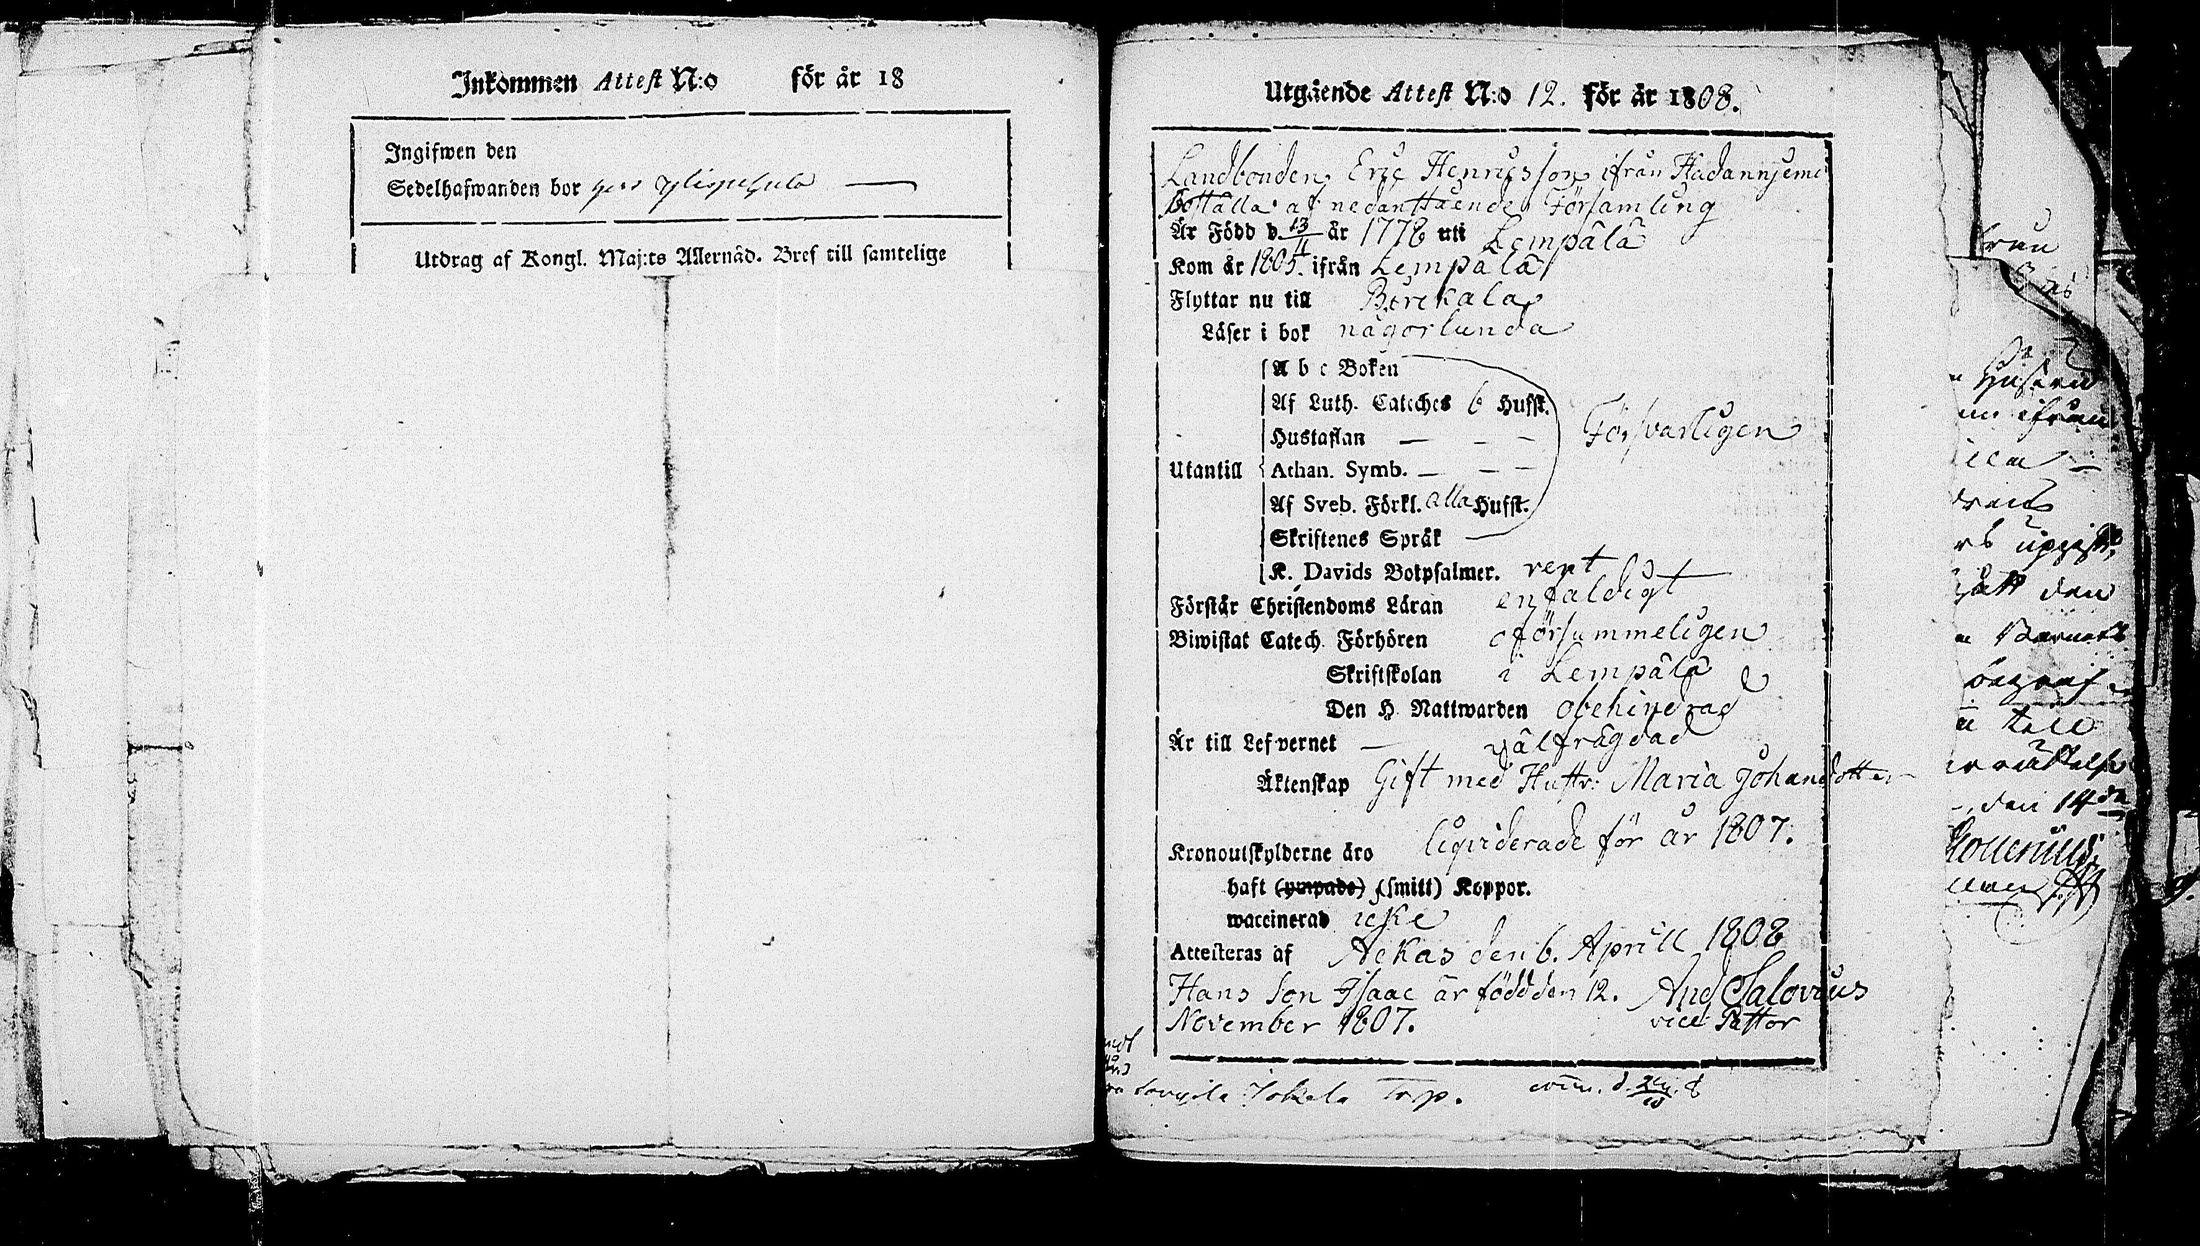 Inkommen Attest N:o för år 18
Ingifwen den
Sedelhafwanden bor
Utdrag af Kongl. Maj:ts Allernåd. Bref till samtelige
Utgående Attest N:o 12. för år 1808.
Landbonden Eric Henricsson ifrån Hadannjemi
Boställa af nedanstående Församling
Är Född d. 13/11 år 1778 uti Lempälä
Kom år 1805. ifrån Lempälä
Flyttar nu till Birckala
Läser i bok någorlunda
A b c Boken
Af Luth. Catches 6 Hufst.
Försvarligen
Hustaflan — - -
Utantill Athan. Symb. — - -
Af Sveb. Förkl. alla Hufst.
Skriftenes Språk
K. Davids Botpsalmer. rent
Förstår Christendoms Läran enfaldigt
Biwistat Catech. Förhören oförsummeligen
Skriftskolan i Lempälä
Den H. Nattwarden obehindrad
Är till Lefvernet — välfrägdad
Äktenskap Gift med Hustr: Maria Johansdotter
Kronoutskylderne äro liqviderade för år 1807.
haft (ympade) (smitt) Koppor.
waccinerad icke
Attesteras af Ackas den 6. Aprill 1808
Hans Son Isaac är född den 12. And Salovius
November 1807. vice Pastor
Jokela Torp.
ifrån
14de